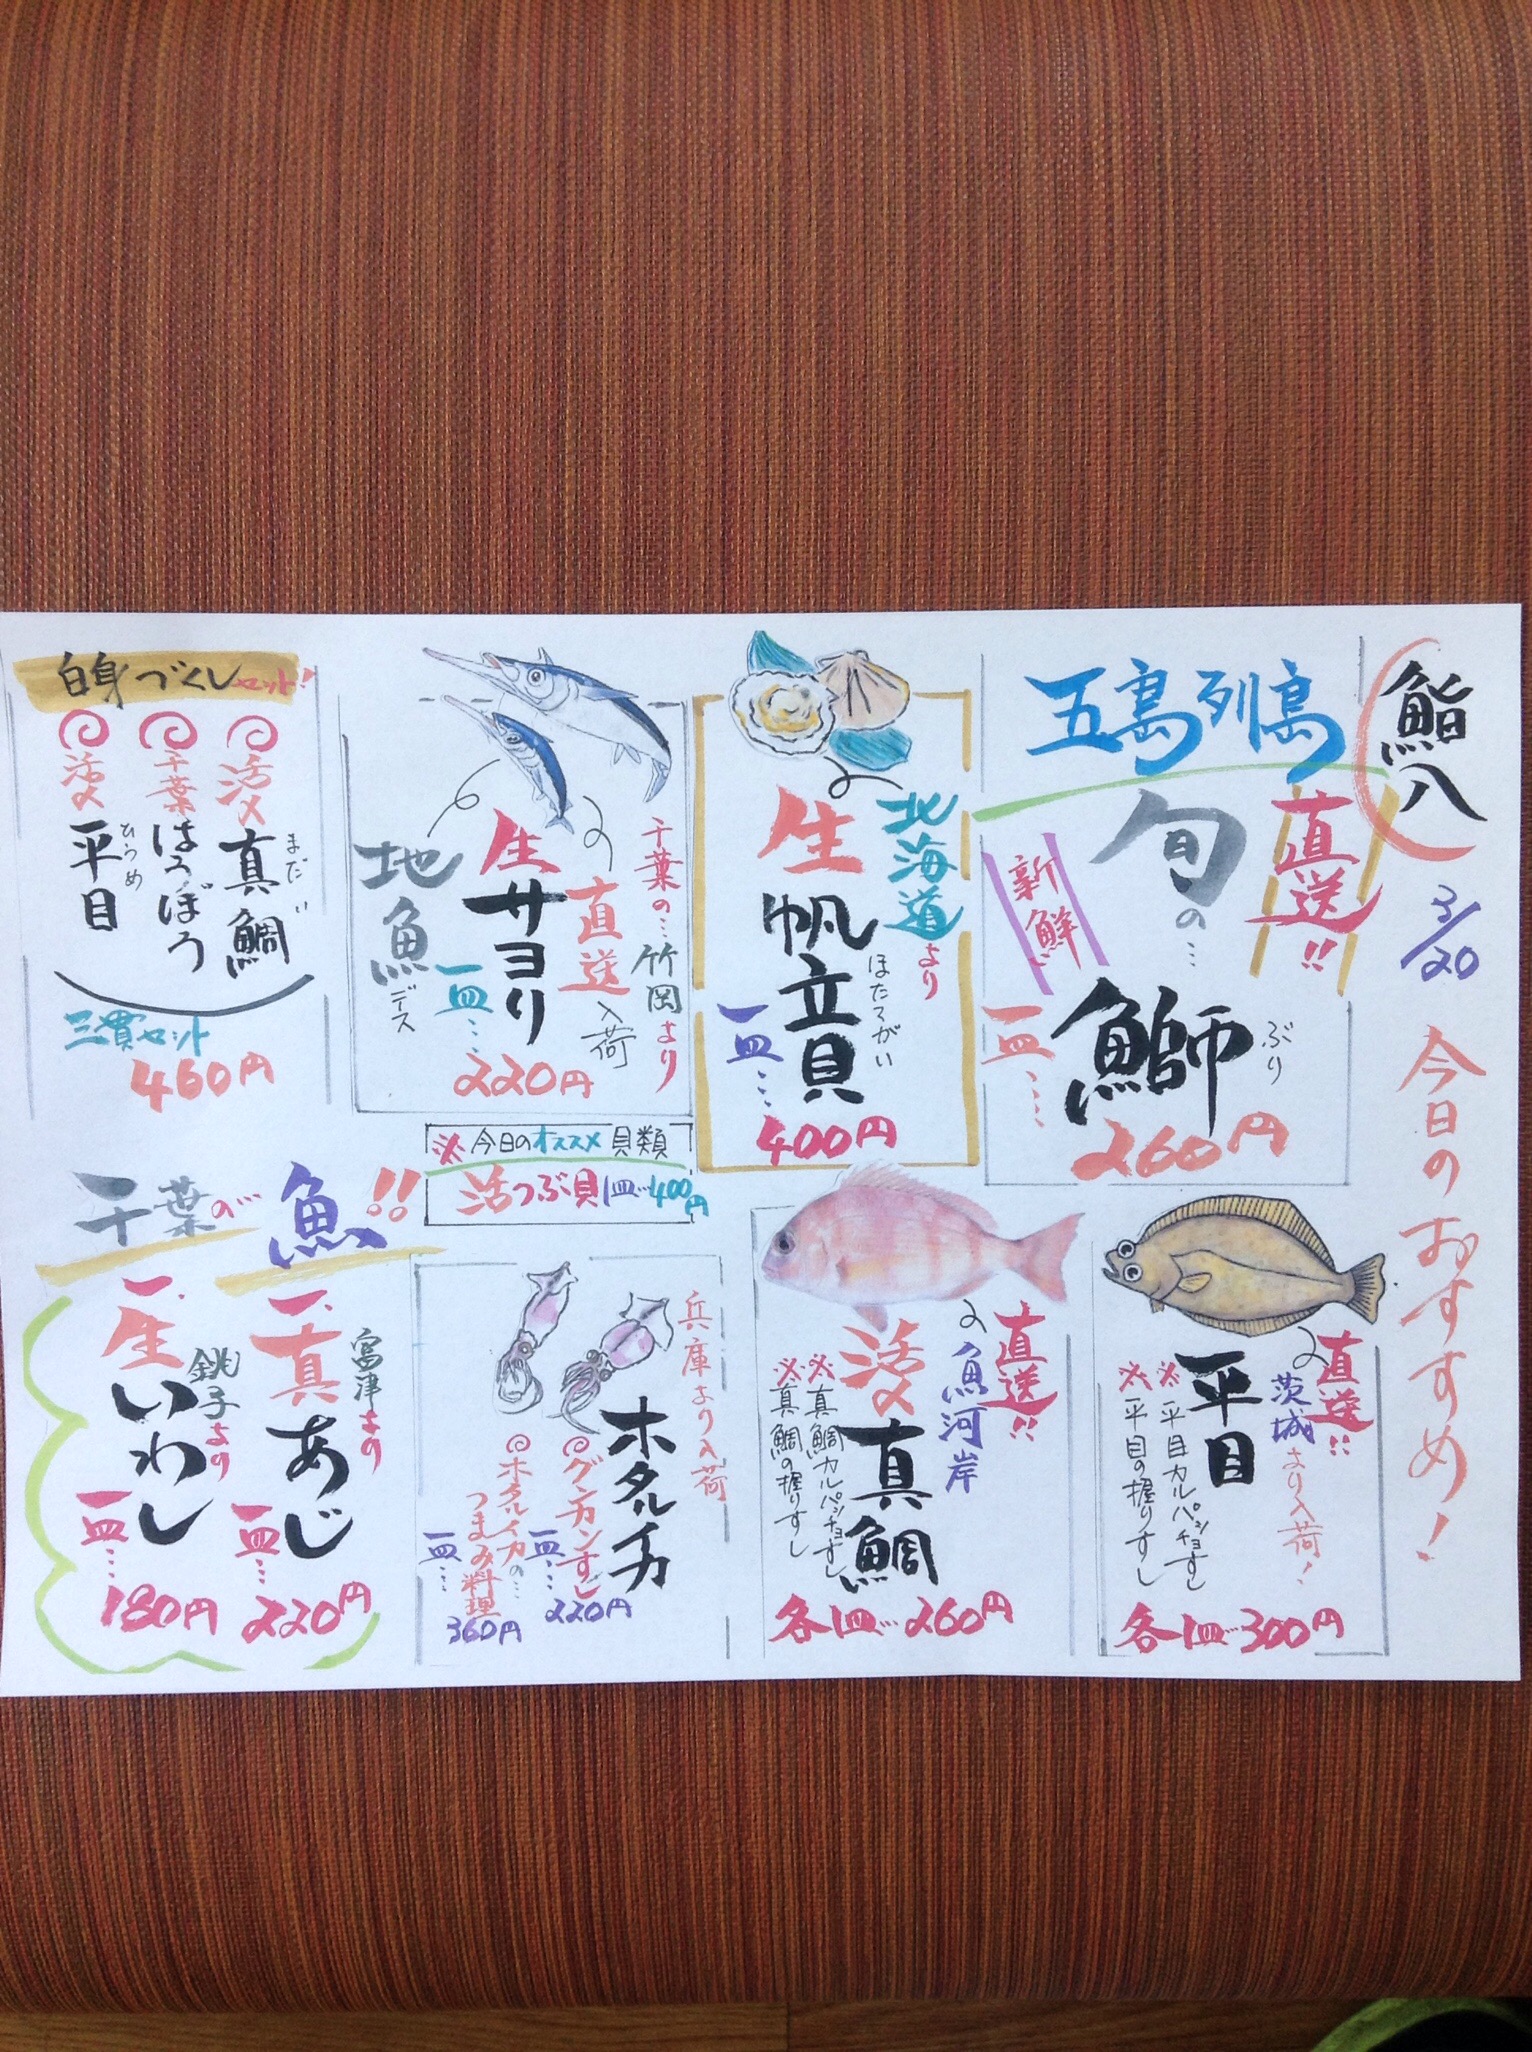 鮨八
3/20
今日のおすすめ!
五島列島
直送!!
旬の…
新鮮
鰤
ぶり
一皿…
260円
北海道より
生帆立貝
ほたてがい
一皿…
400円
千葉の…竹岡より
直送入荷
生サヨリ
一皿…
220円
地魚デス
※今日のオススメ貝類
活つぶ貝1皿…400円
白身づくしセット!
活〆真鯛
まだい
千葉ほうぼう
活〆平目
ひらめ
三貫セット
460円
直送!!
茨城より入荷!
平目
※平目カルパッチョすし
※平目の握りすし
各1皿…300円
直送!!
魚河岸
活〆真鯛
※真鯛カルパッチョすし
※真鯛の握りすし
各1皿…260円
兵庫より入荷
ホタルイカ
グンカンすし
一皿…
220円
ホタルイカの…
つまみ料理
一皿…
360円
千葉の…魚!!
一、真あじ
富津より
一皿…
220円
一、生いわし
銚子より
一皿…
180円